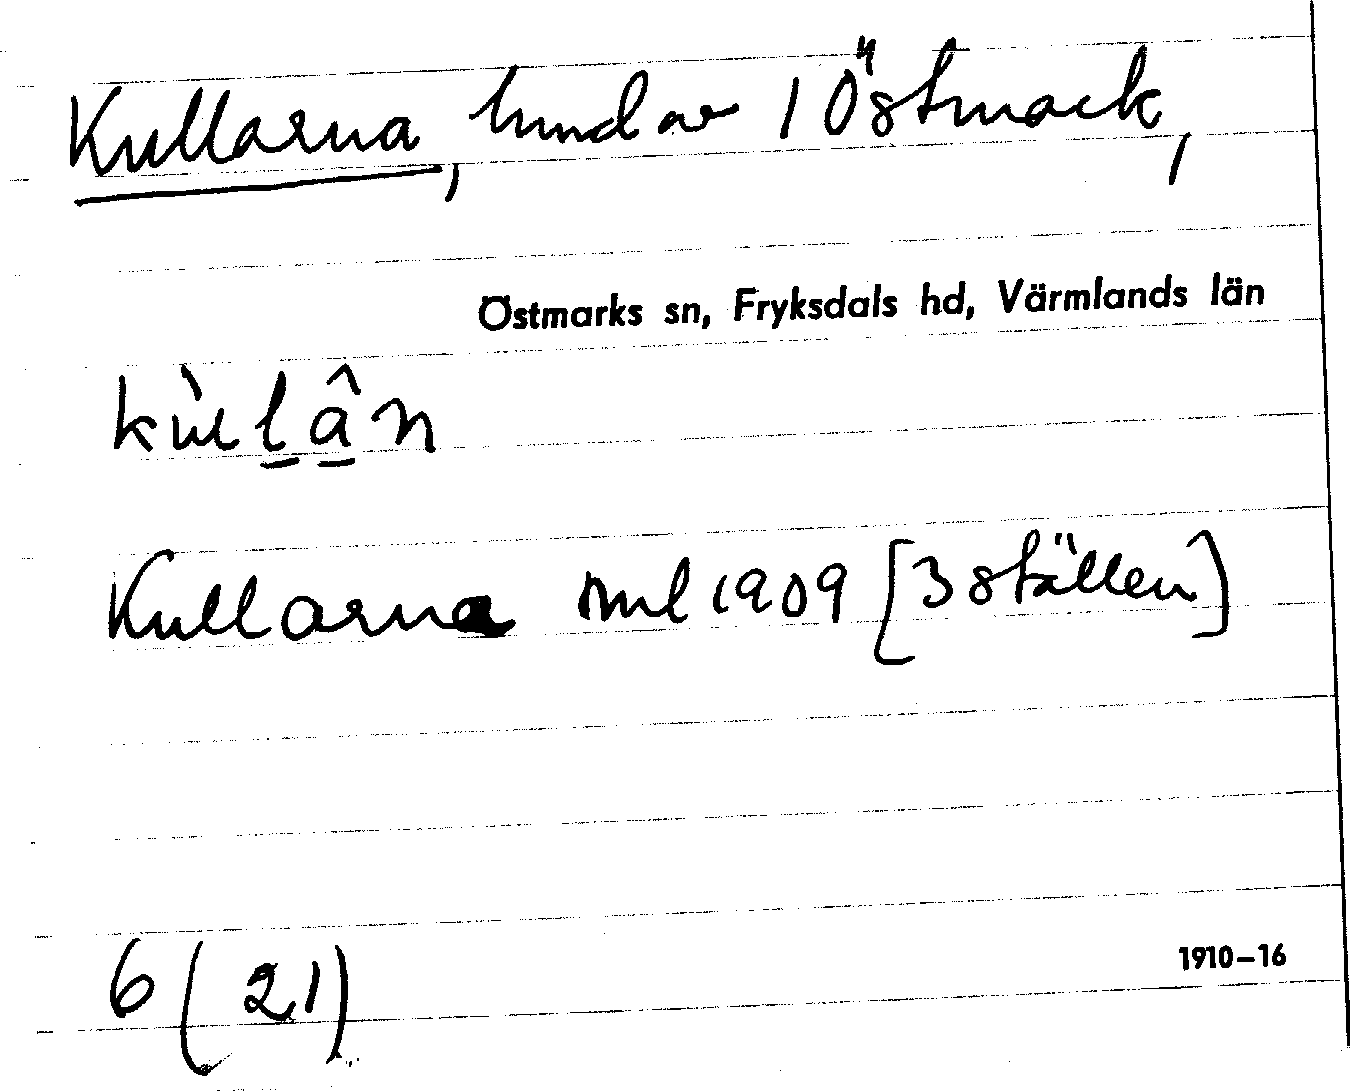 Kullarna, hmd av 1 Östmark,
Östmarks sn, Fryksdals hd, Värmlands län
kùlân
Kullarna Jml 1909 [3 ställen]
6 (21)
1910–16